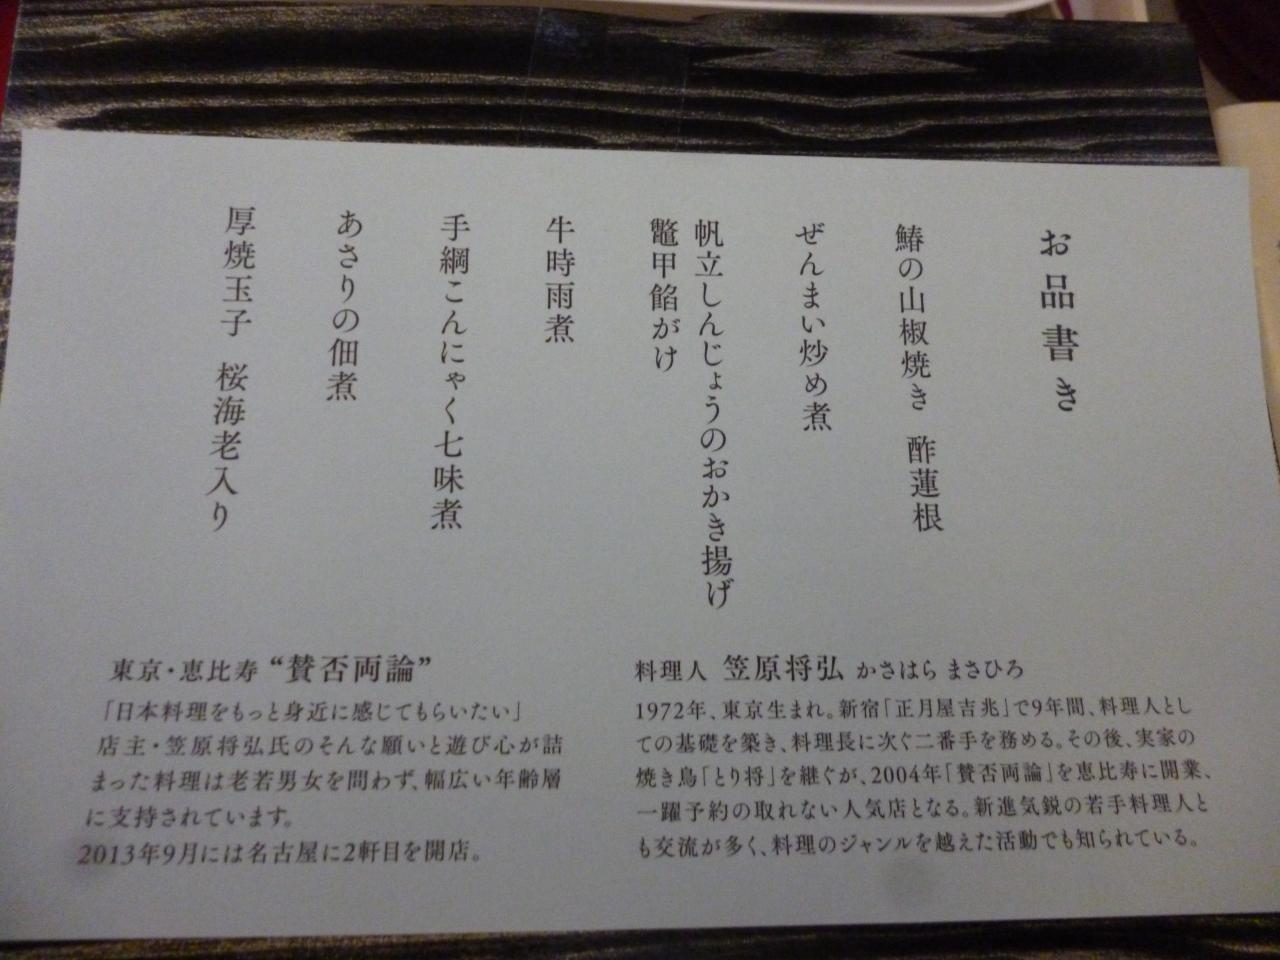 お品書き
鰆の山椒焼き　酢蓮根
ぜんまい炒め煮
帆立しんじょうのおかき揚げ
鼈甲餡がけ
牛時雨煮
手綱こんにゃく七味煮
あさりの佃煮
厚焼玉子　桜海老入り
料理人 笠原将弘 かさはら まさひろ
1972年、東京生まれ。新宿「正月屋吉兆」で9年間、料理人とし
ての基礎を築き、料理長に次ぐ二番手を務める。その後、実家の
焼き鳥「とり将」を継ぐが、2004年「賛否両論」を恵比寿に開業、
一躍予約の取れない人気店となる。新進気鋭の若手料理人と
も交流が多く、料理のジャンルを越えた活動でも知られている。
東京・恵比寿 “賛否両論”
「日本料理をもっと身近に感じてもらいたい」
店主・笠原将弘氏のそんな願いと遊び心が詰
まった料理は老若男女を問わず、幅広い年齢層
に支持されています。
2013年9月には名古屋に2軒目を開店。